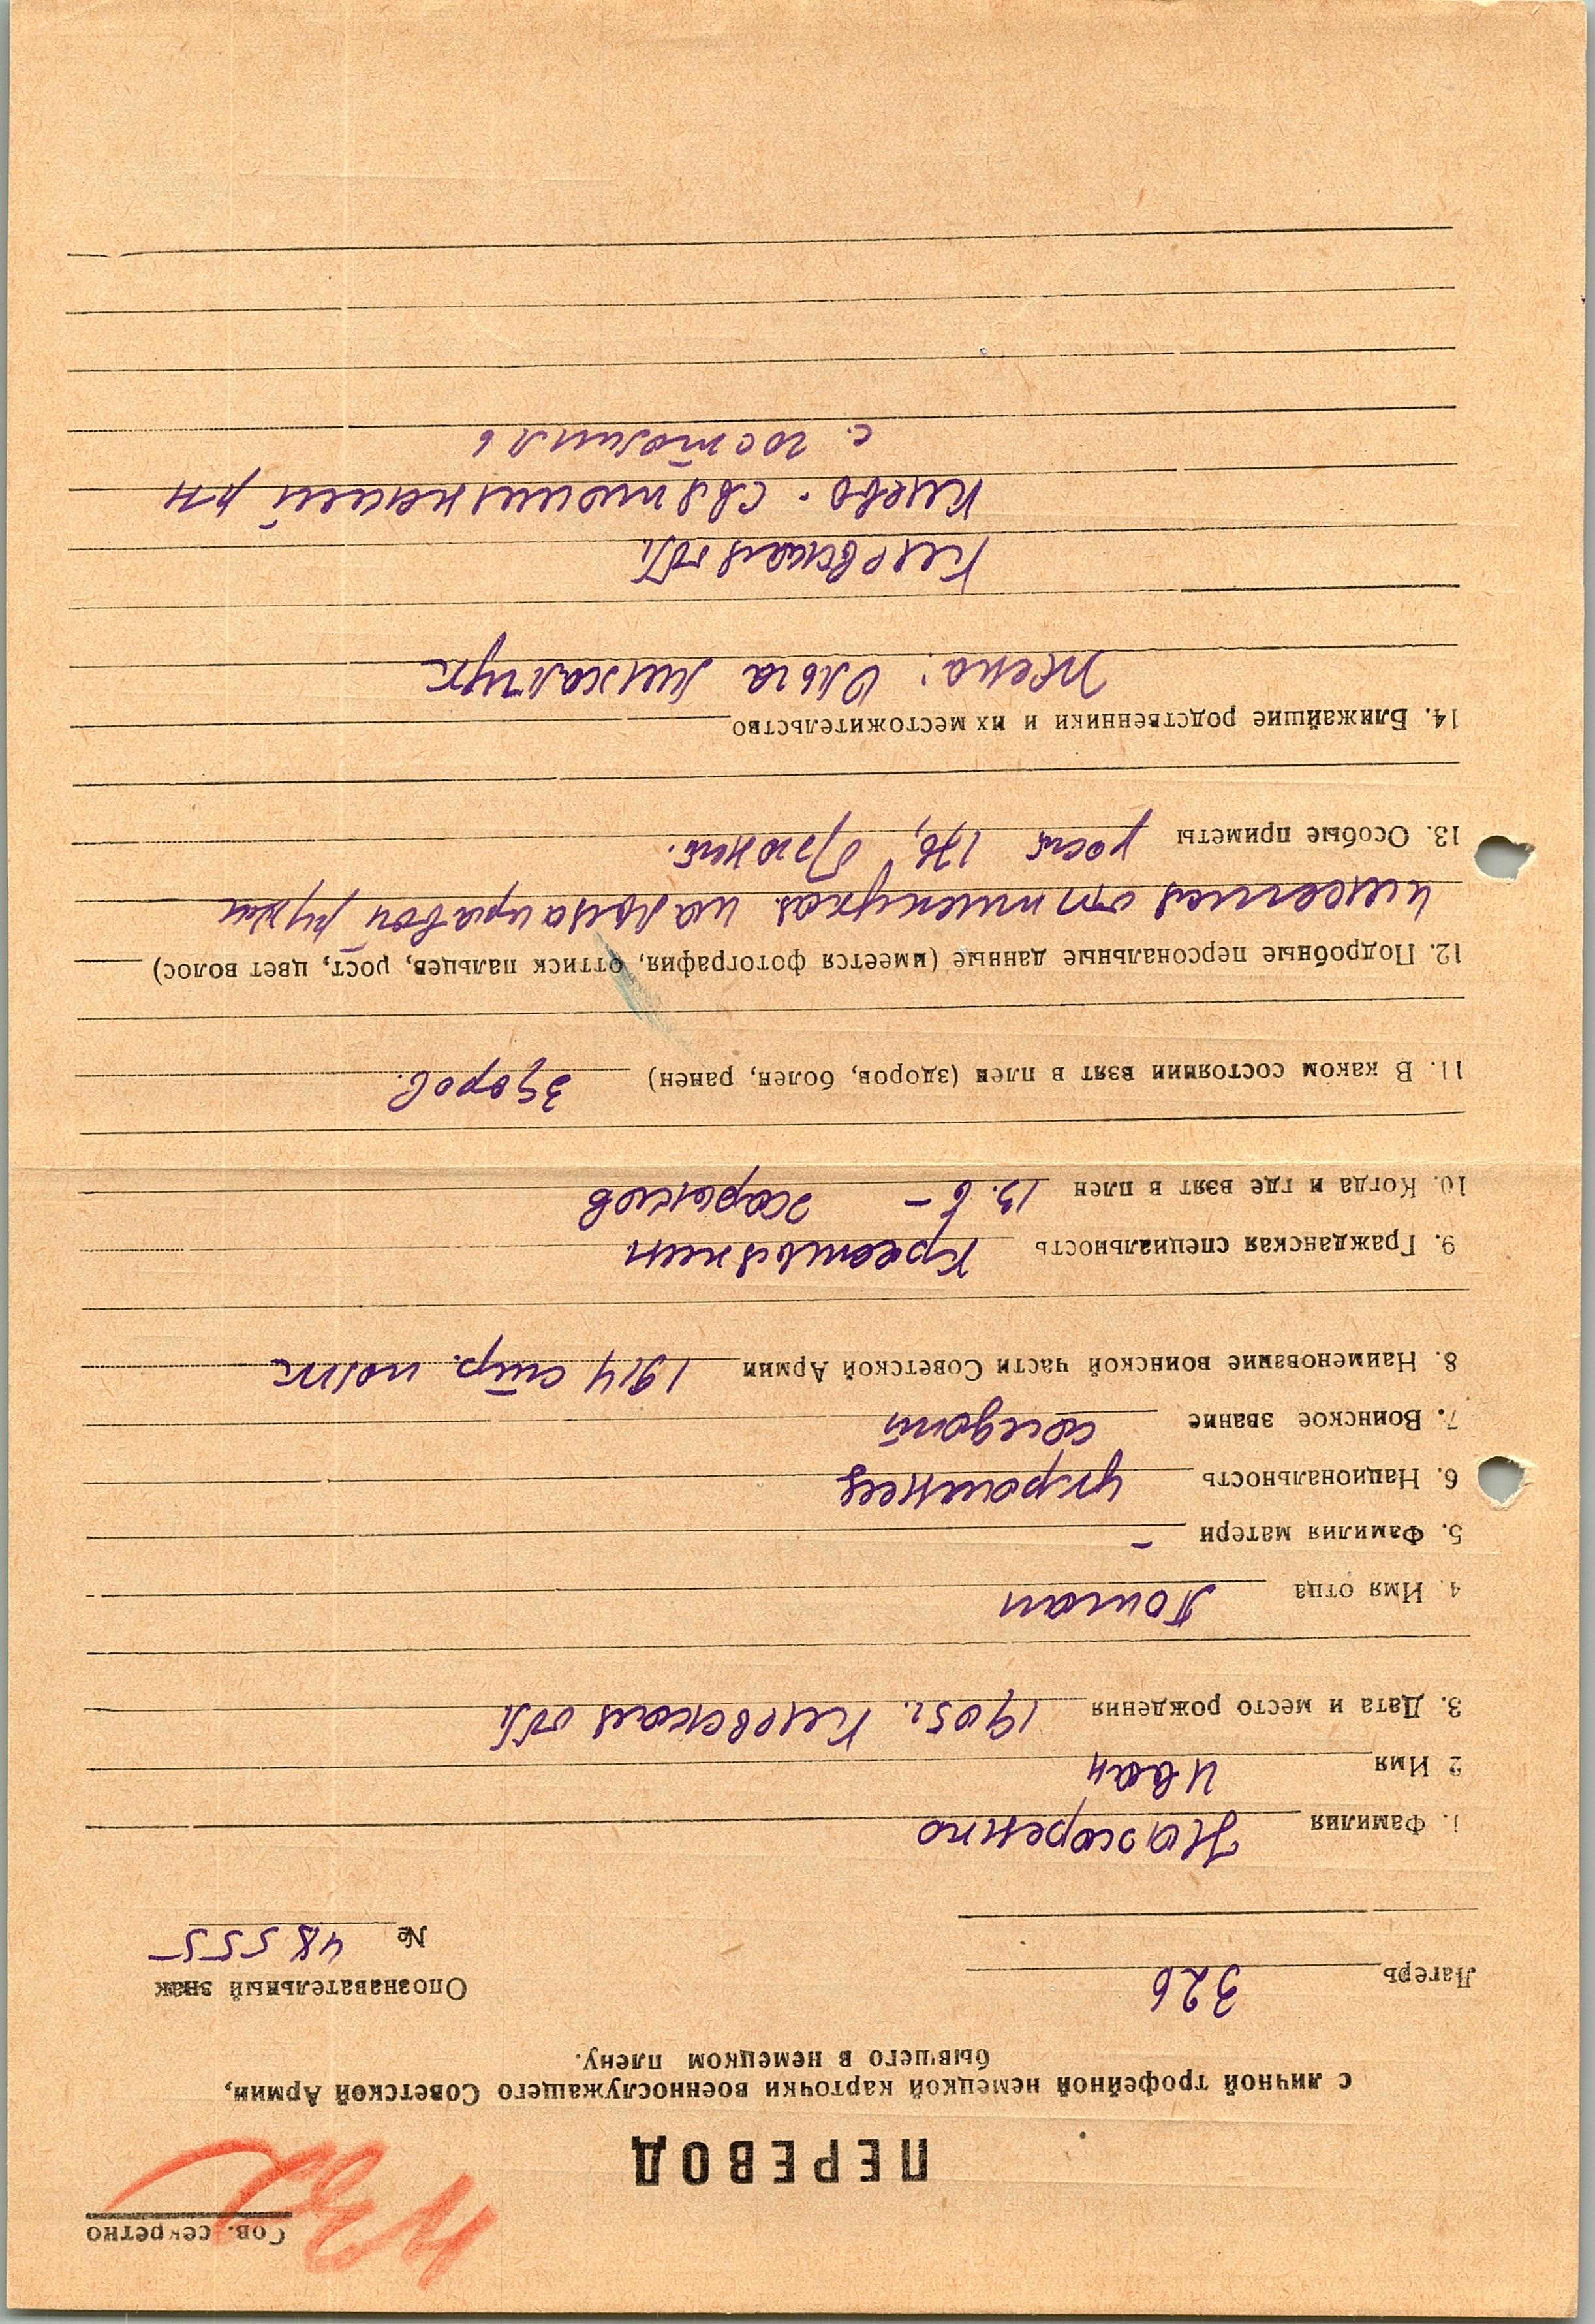 Сов. секретно
ПЕРЕВОД
с личной трофейной немецкой карточки военнослужащего Советской Армии,
бывшего в немецком плену.
Лагерь 326
Опознавательный знак
№ 48555
1. Фамилия Назоренко
2 Имя Иван
3. Дата и место рождения 1905г. Киевская обл
4. Имя отца Роман
5. Фамилия матери –
6. Национальность украинец
7. Воинское звание солдат
8. Наименование воинской части Советской Армии 1914 стр. полк
9. Гражданская специальность крестьянин
10. Когда и где взят в плен 13.6 – Харьков
11. В каком состоянии взят в плен (здоров, болен, ранен) здоров.
12. Подробные персональные данные (имеется фотография, оттиск пальцев, рост, цвет волос)
имеется отпечаток пальца правой руки
13. Особые приметы рост 176, брюнет.
14. Ближайшие родственники и их местожительство
Жена: Ольга Михалчук
Киевская обл.
Киево-Святошинский р-н
с. Гостомиль